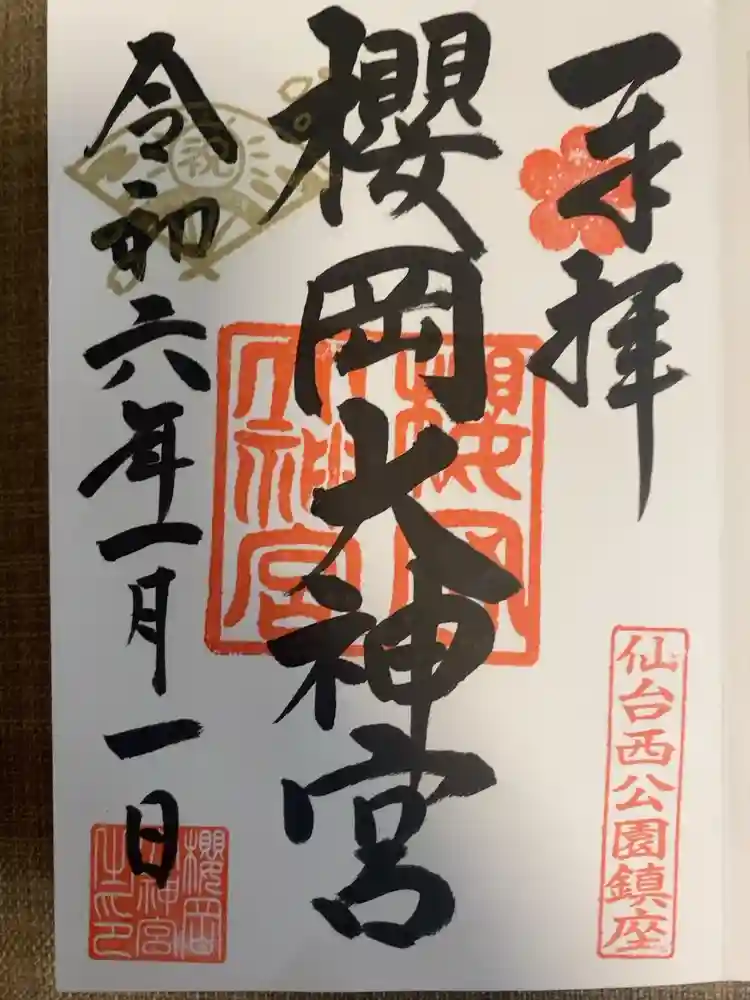 奉拝
櫻岡大神宮
櫻岡
大神宮
仙台西公園鎮座
祝
令和六年一月一日
櫻岡
大神宮
之印